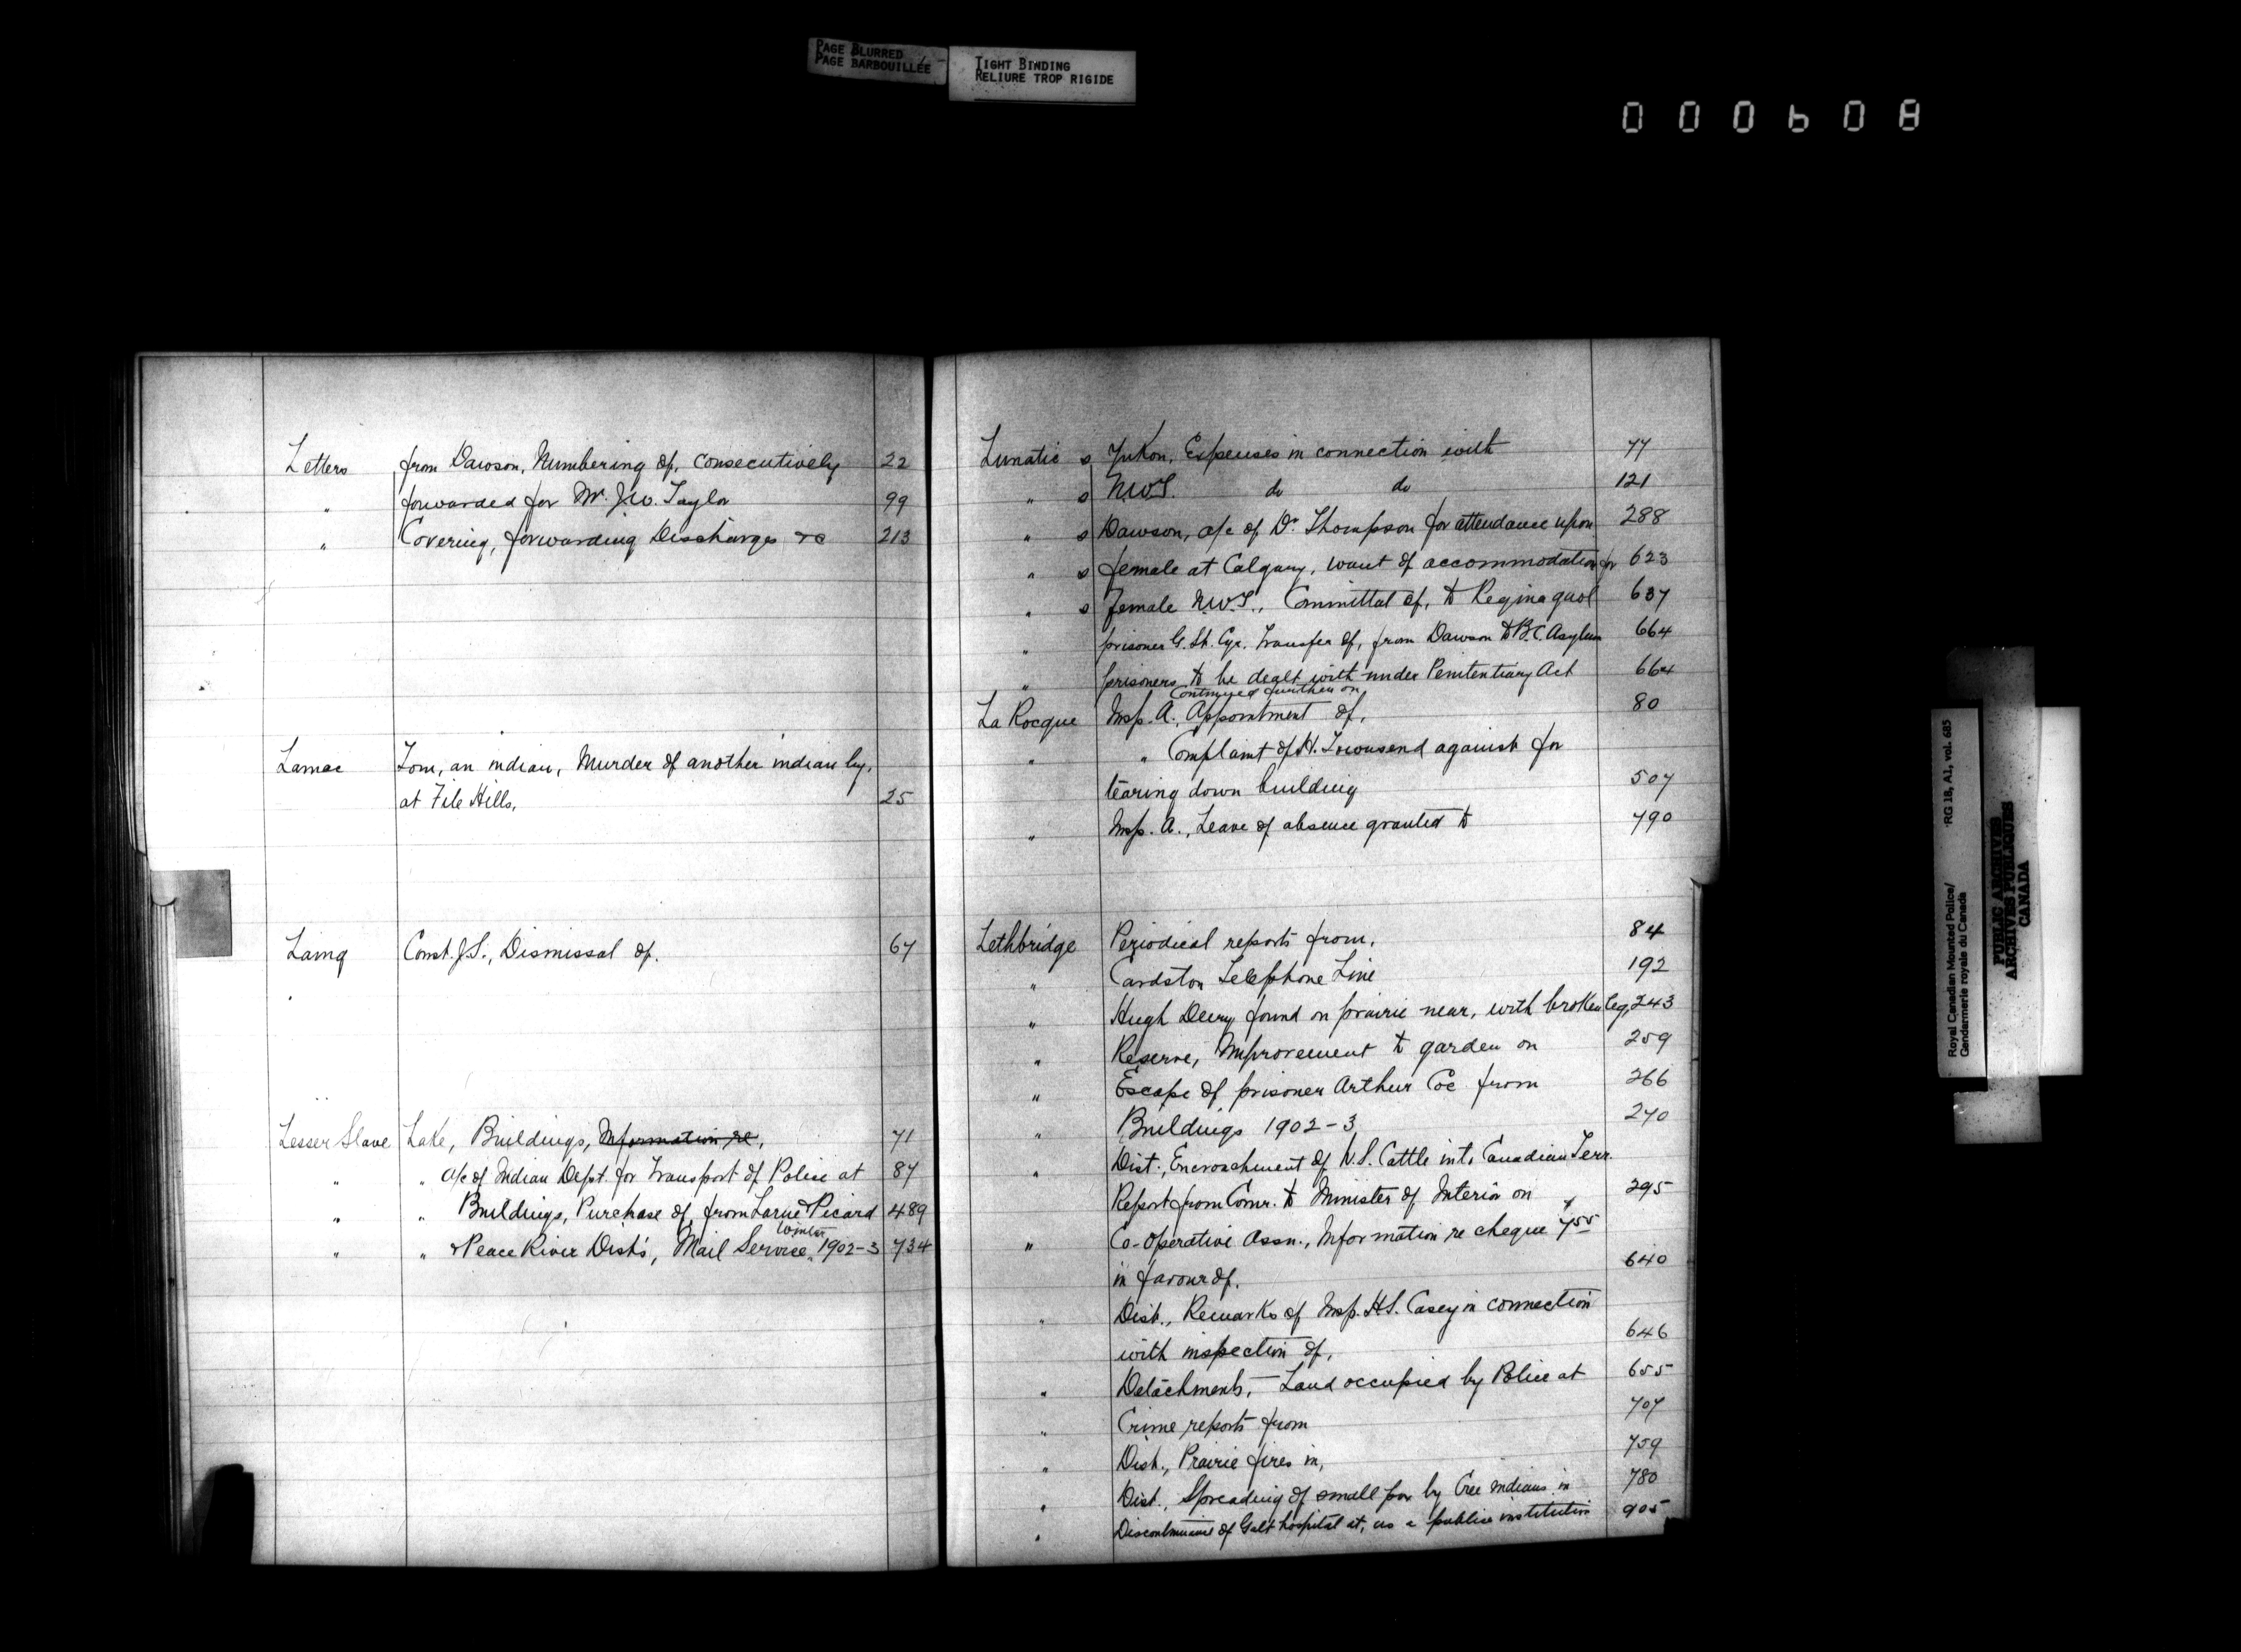 PAGE BLURRED
PAGE BARBOUILLÉE
TIGHT BINDING
RELIURE TROP RIGIDE
000608
Letters from Dawson, Numbering of, consecutively 22
" forwarded for Mr. J.W. Taylor 99
" Covering, forwarding Discharges &c 213
Lamac Tom, an indian, Murder of another indian by,
at File Hills, 25
Laing Const. J.S., Dismissal of. 67
Lesser Slave Lake, Buildings, Information re, 71
" " a/c of Indian Dept. for Transport of Police at 87
" " Buildings, Purchase of, from Larue & Picard 489
" " & Peace River Dist's, Mail Service, Winter 1902-3 734
Lunatic s Yukon, Expenses in connection with 77
" s N.W.T. do do 121
" s Dawson, a/c of Dr. Thompson for attendance upon 288
" s female at Calgary, want of accommodation for 623
" s female N.W.T., Committal of, to Regina gaol 637
" prisoner G. St. Cyr. Transfer of, from Dawson to B.C. Asylum 664
" prisoners to be dealt with under Penitentiary Act 664
Continued further on
La Rocque Insp. A., Appointment of, 80
" " Complaint of H. Townsend against for
tearing down building 507
" Insp. A., Leave of absence granted to 790
Lethbridge Periodical reports from, 84
" Cardston Telephone Line 192
" Hugh Deery found on prairie near, with broken leg, 243
" Reserve, Improvement to garden on 259
" Escape of prisoner Arthur Coe from 266
" Buildings 1902-3 270
" Dist., Encroachment of U.S. Cattle into Canadian Terr.
Report from Comr. to Minister of Interior on 295
" Co-operative Assn., Information re cheque 755
in favour of. 640
" Dist., Remarks of Insp. H.S. Casey in connection
with inspection of, 646
" Detachments, - Land occupied by Police at 655
" Crime reports from 707
" Dist., Prairie fires in, 759
" Dist., Spreading of small pox by Cree Indians in 780
" Discontinuance of Galt hospital at, as a public institution 905
RG 18, A1, vol. 685
Royal Canadian Mounted Police/
Gendarmerie royale du Canada
PUBLIC ARCHIVES
ARCHIVES PUBLIQUES
CANADA